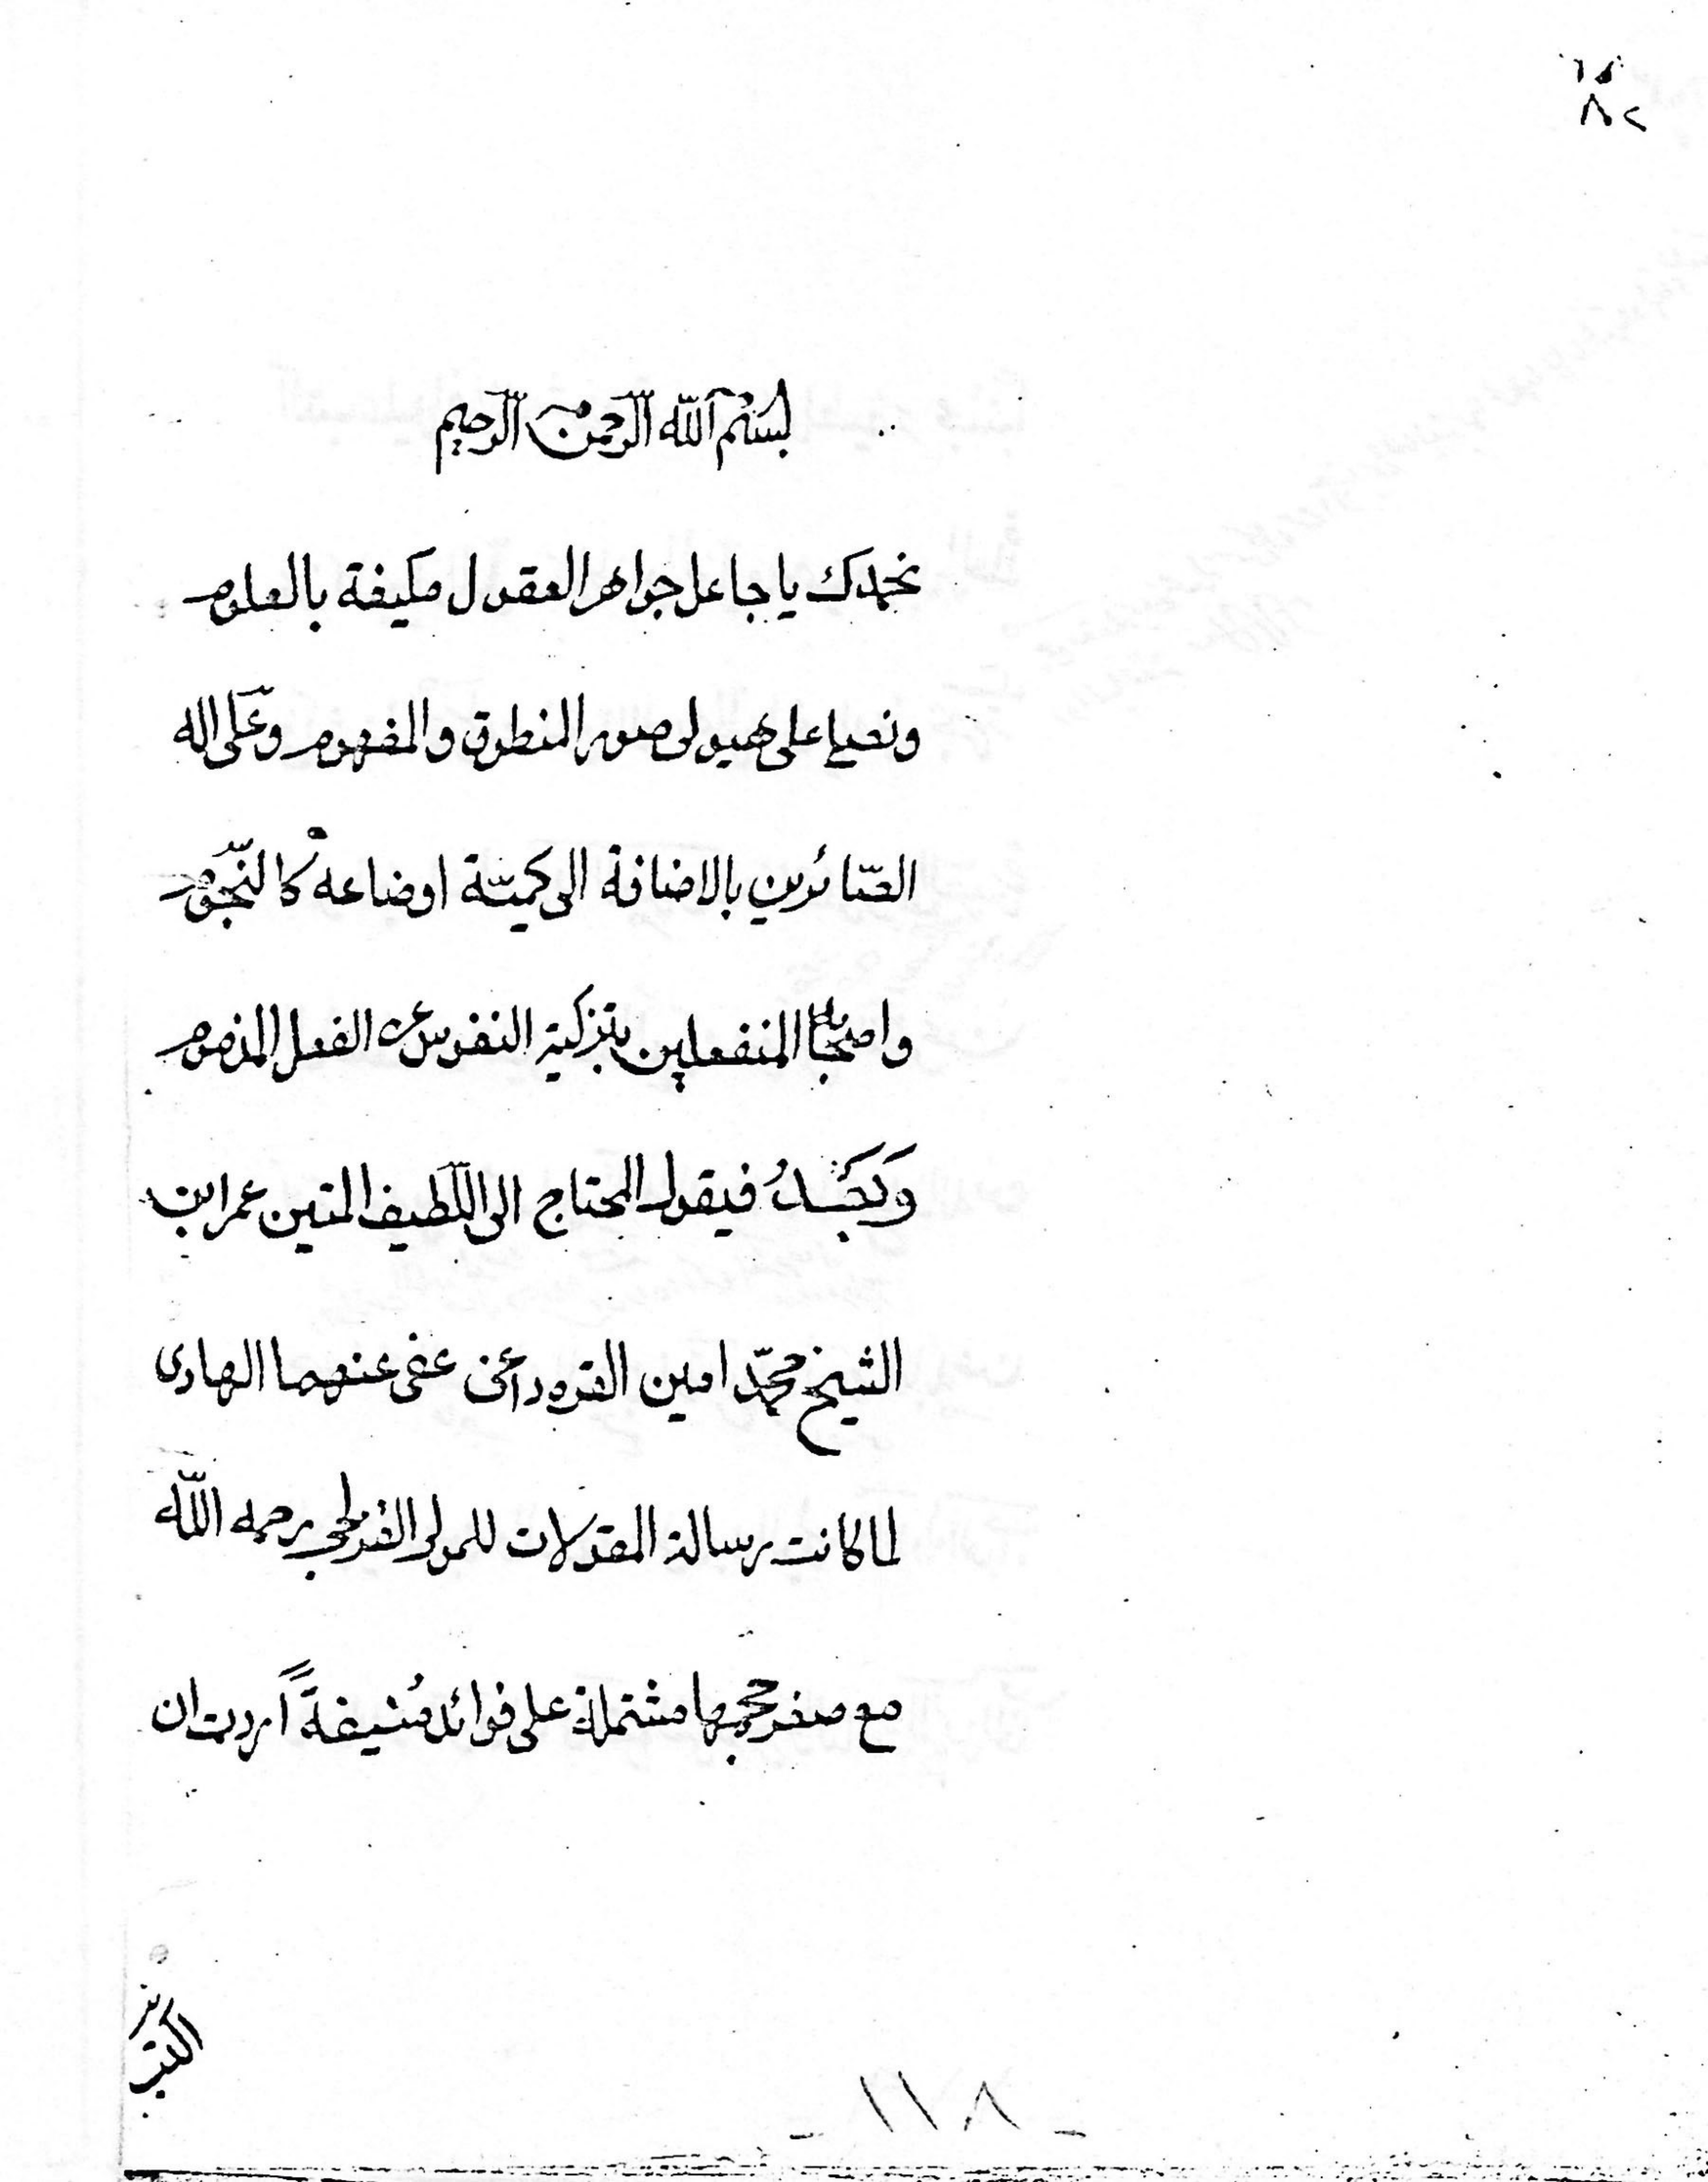 بسم الله الرحمن الرحيم
نحمدك يا جاعل جواهر العقول مكيفة بالعلوم
ونصلي على هيولى صور المنطوق والمفهوم وعلى اله
الصّائرين بالاضافة الى كميّة اوضاعه كالنّجوم
واصحابه المنفعلين بتزكية النفوس عن الفعل المذموم
وَبَعْدُ فيقول المحتاج الى اللّطيف المتين عمر ابن
الشيخ محمّد امين القره داغى عفى عنهما الهادى
لما كانت رسالة المقولات للمولى القزلجي رحمه اللّه
مع صغر حجمها مشتملة على فوائد مُنيفةً اردت ان
اكتب
- ١١٨ -